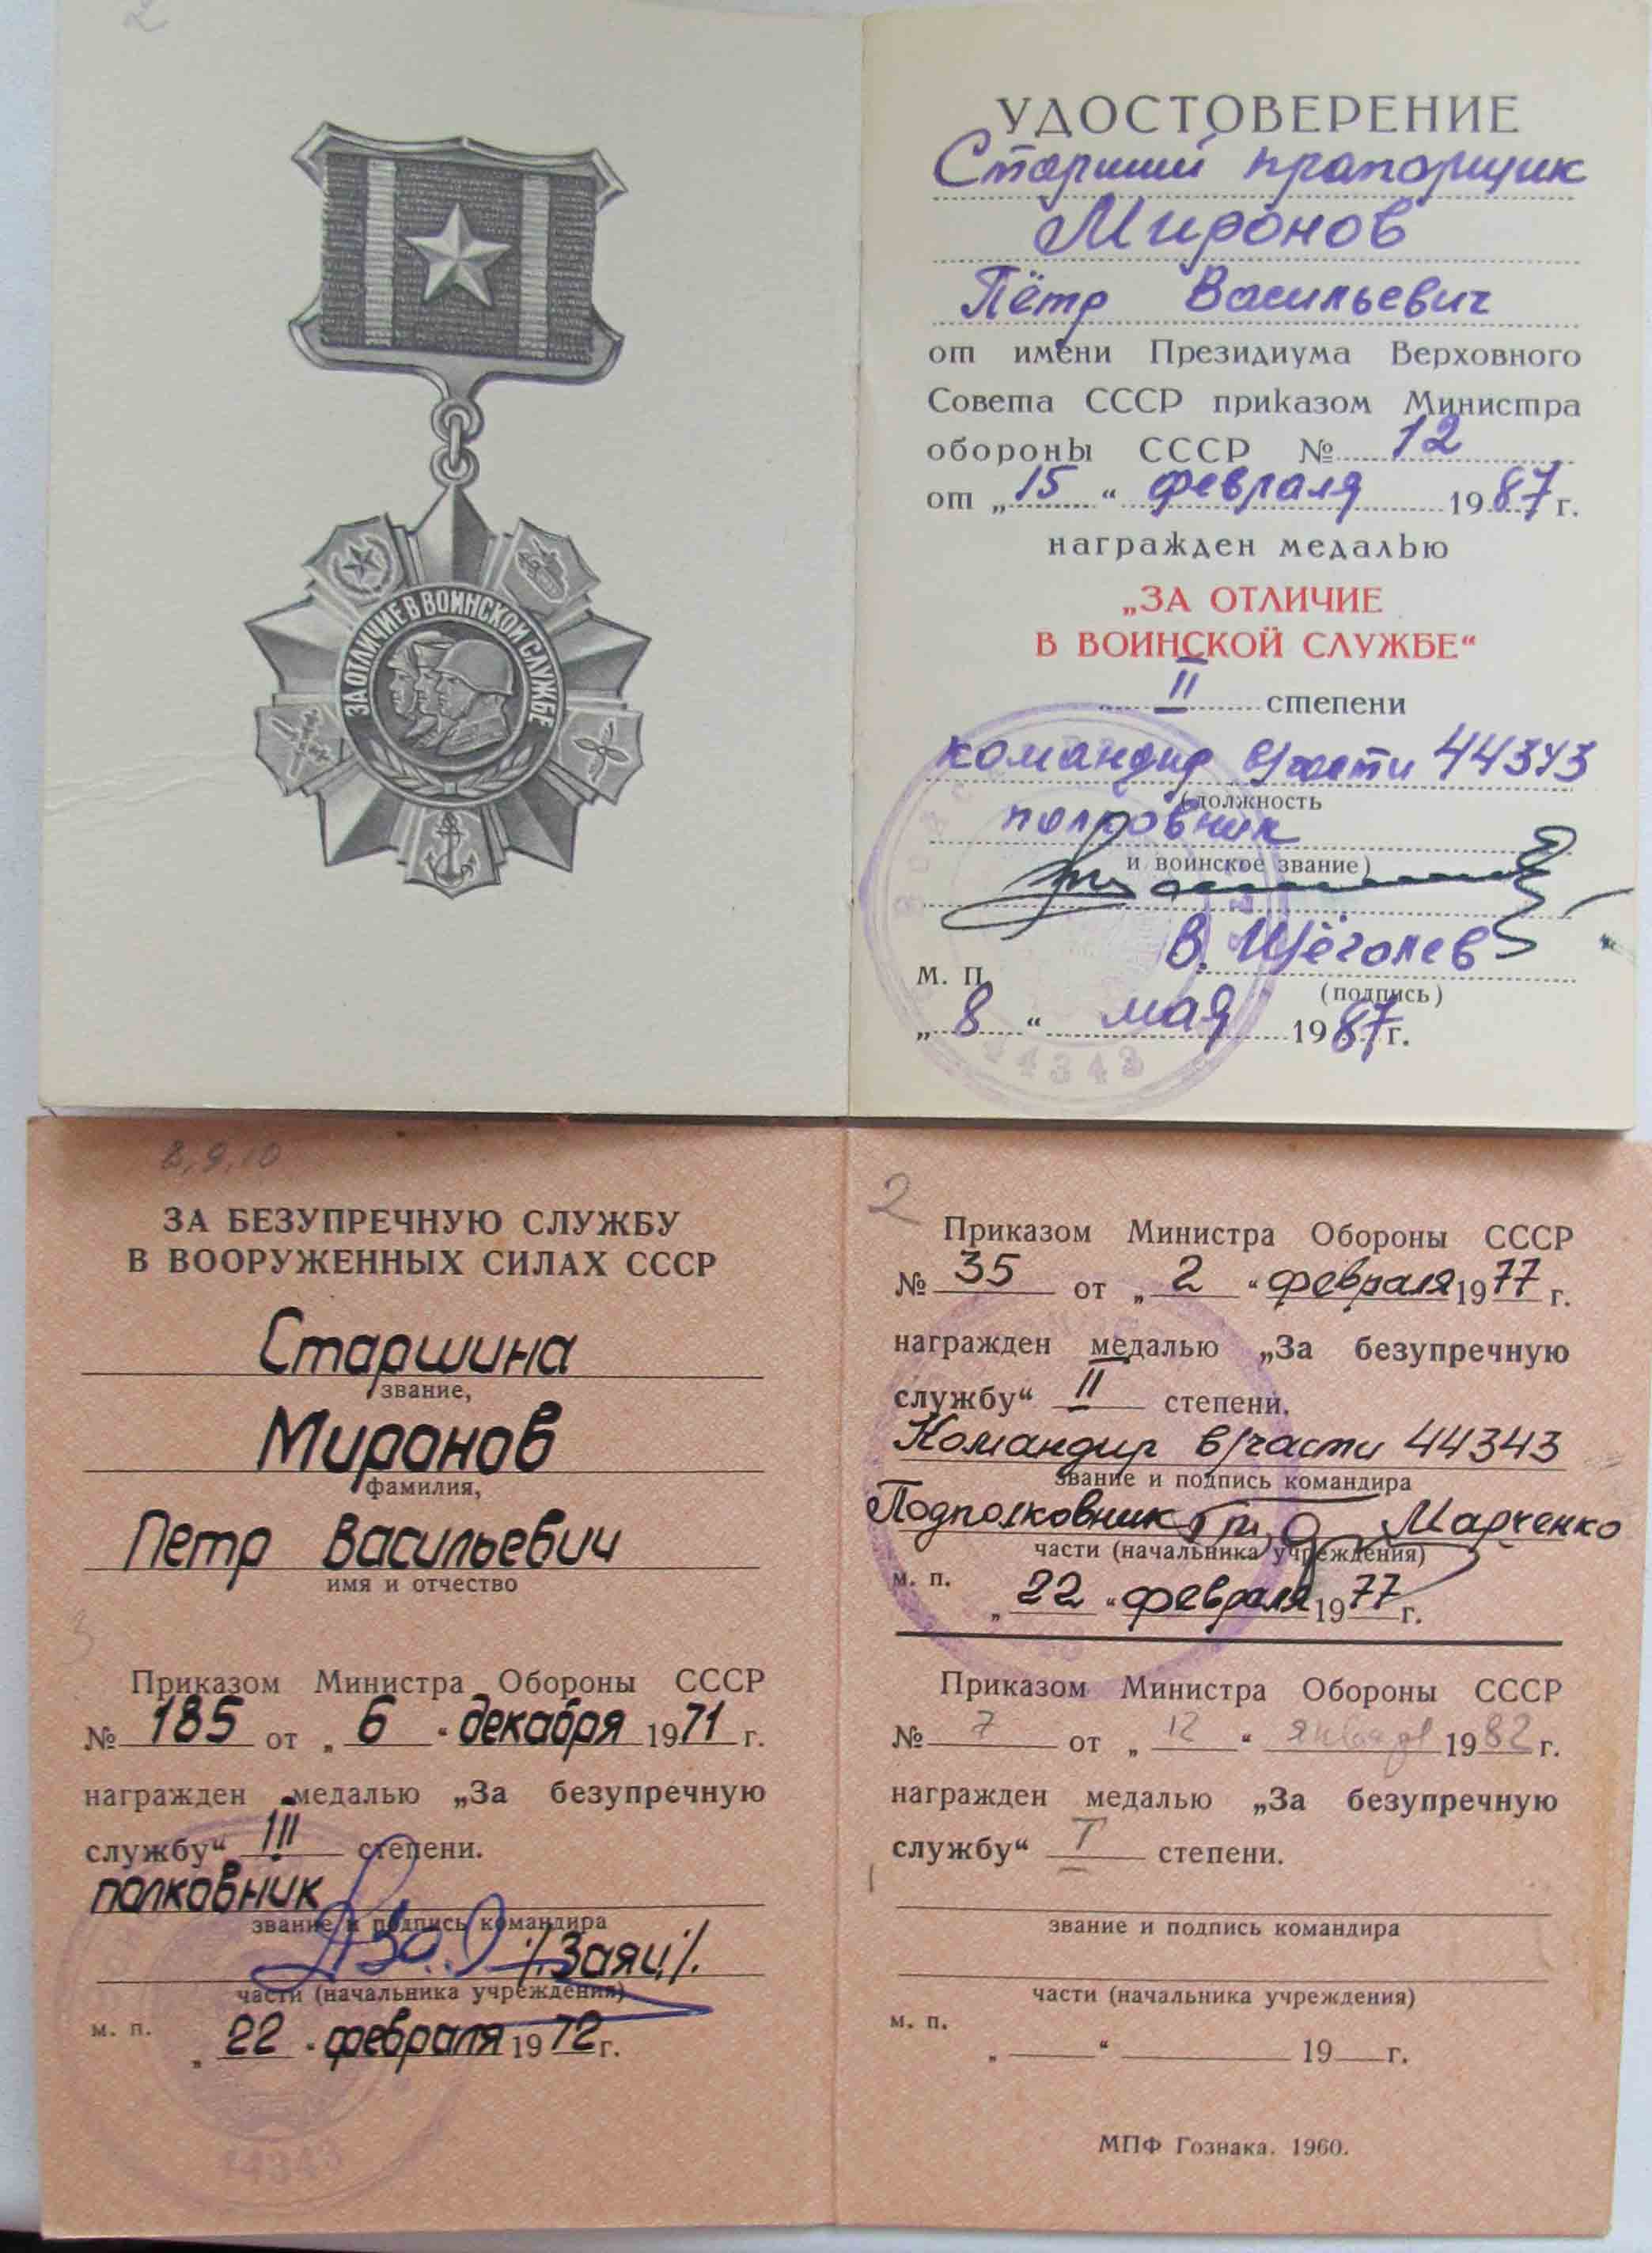 2
ЗА ОТЛИЧИЕ В ВОИНСКОЙ СЛУЖБЕ
УДОСТОВЕРЕНИЕ
Старший прапорщик
Миронов
Пётр Васильевич
от имени Президиума Верховного
Совета СССР приказом Министра
обороны СССР № 12
от „15“ февраля 1987 г.
награжден медалью
„ЗА ОТЛИЧИЕ
В ВОИНСКОЙ СЛУЖБЕ“
II степени
командир в/части 44343
(должность
полковник
и воинское звание)
В. Щёголев
М. П.
(подпись)
„8“ мая 1987 г.
44343
8, 9, 10
ЗА БЕЗУПРЕЧНУЮ СЛУЖБУ
В ВООРУЖЕННЫХ СИЛАХ СССР
Старшина
звание,
Миронов
фамилия,
Петр Васильевич
имя и отчество
3
Приказом Министра Обороны СССР
№ 185 от „6“ декабря 1971 г.
награжден медалью „За безупречную
службу“ III степени.
полковник
звание и подпись командира
/Заяц/.
части (начальника учреждения)
м. п.
„22“ февраля 1972 г.
44343
2
Приказом Министра Обороны СССР
№ 35 от „2“ февраля 1977 г.
награжден медалью „За безупречную
службу“ II степени.
Командир в/части 44343
звание и подпись командира
Подполковник Марченко
части (начальника учреждения)
м. п.
„22“ февраля 1977 г.
Приказом Министра Обороны СССР
№ 7 от „12“ января 1982 г.
награжден медалью „За безупречную
службу“ I степени.
звание и подпись командира
части (начальника учреждения)
м. п.
„ “ 19 г.
МПФ Гознака. 1960.